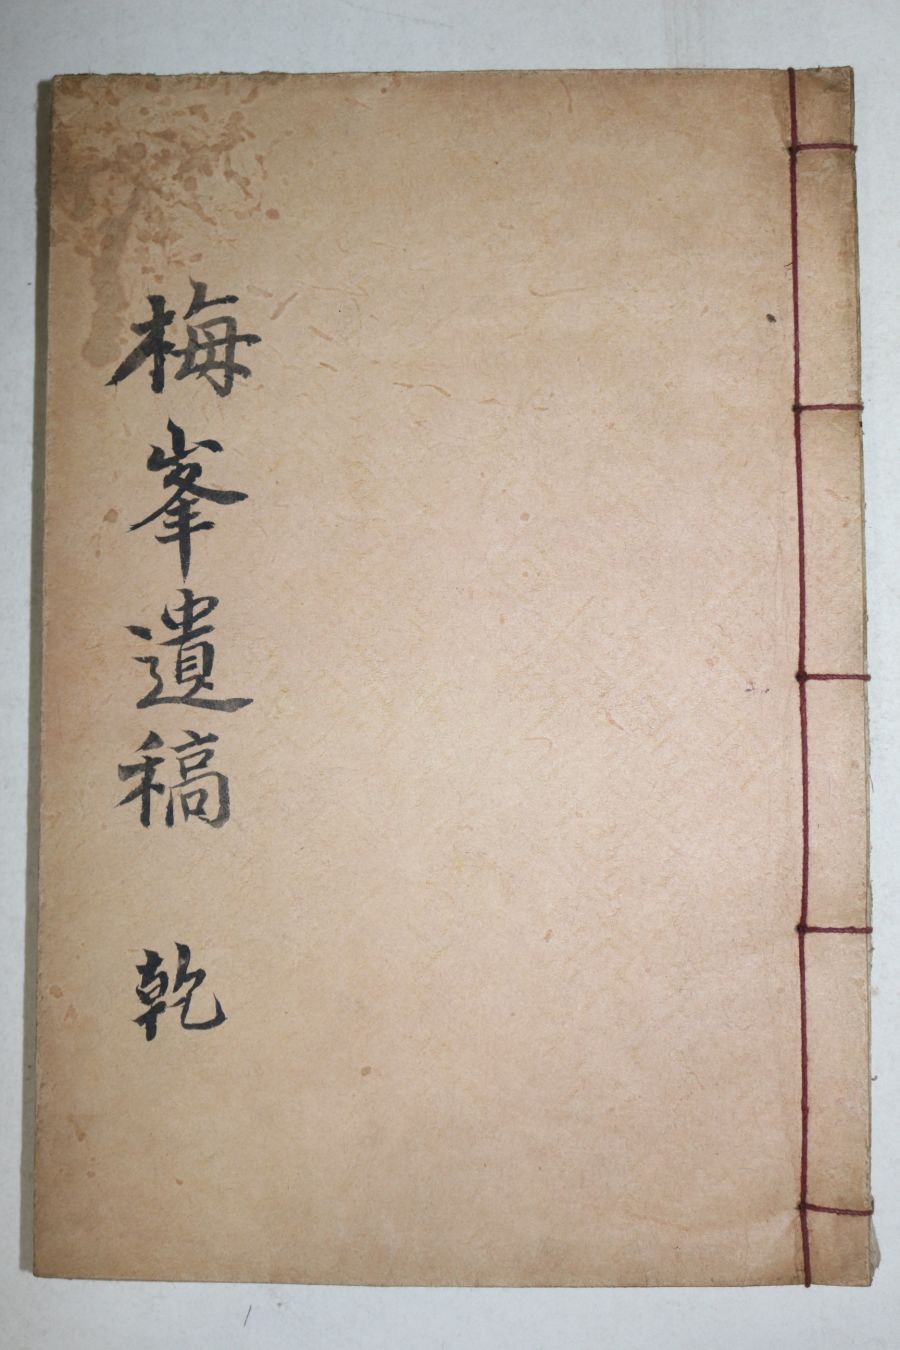 梅峯遺稿 乾